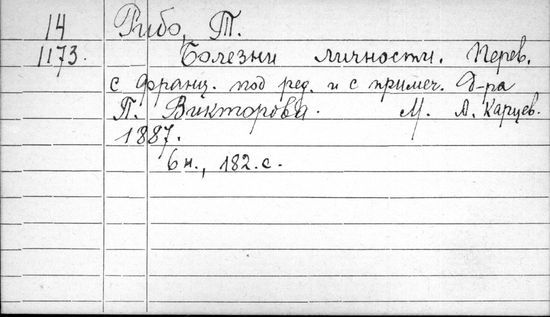 14 Рибо, Т.
1173. Болезни личности. Перев.
с франц. под ред. и с примеч. Д-ра
П. Викторова. М. А. Карцев.
1887.
6 н., 182 с.